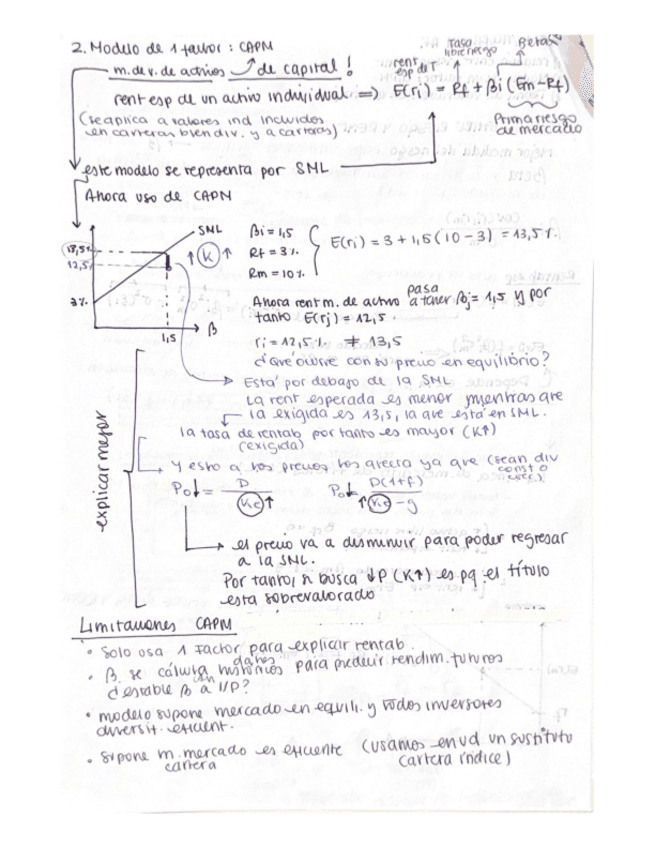 2. Modelo de 1 factor: CAPM
m. de v. de activos de capital!
Tasa libre riesgo
Beta
rent esp del T
rent esp de un activo individual => E(ri) = Rf + βi (Em - Rf)
Prima riesgo de mercado
(se aplica a valores ind incluidos
en carteras bien div. y a carteras)
este modelo se representa por SML
Ahora uso de CAPM
SML
13,5%
12,5%
3%
1,5
β
↑ K ↑
βi = 1,5
Rf = 3%
Rm = 10%
E(ri) = 3 + 1,5 (10 - 3) = 13,5%.
Ahora rent m. de activo pasa a tener βj = 1,5 y por
tanto E(rj) = 12,5.
ri = 12,5% ≠ 13,5
¿Qué ocurre con su precio en equilibrio?
Está por debajo de la SML
La rent esperada es menor mientras que
la exigida es 13,5, la que está en SML.
la tasa de rentab por tanto es mayor (K↑)
(exigida)
explicar mejor
Y esto a los precios los afecta ya que (sean div
const o
crec)
Po↓ = D / Ke↑
Po↓ = D(1+f) / Ke↑ - g
el precio va a disminuir para poder regresar
a la SML.
Por tanto, si busca ↓P (K↑) es pq el título
esta sobrevalorado
Limitaciones CAPM
• Solo usa 1 factor para explicar rentab.
• β se cálcula con datos históricos para predecir rendim. futuros
¿estable β a l/p?
• modelo supone mercado en equili. y todos inversores
diversif. eficient.
• supone m. mercado es eficiente (usamos en vd un sustituto
cartera
cartera índice)